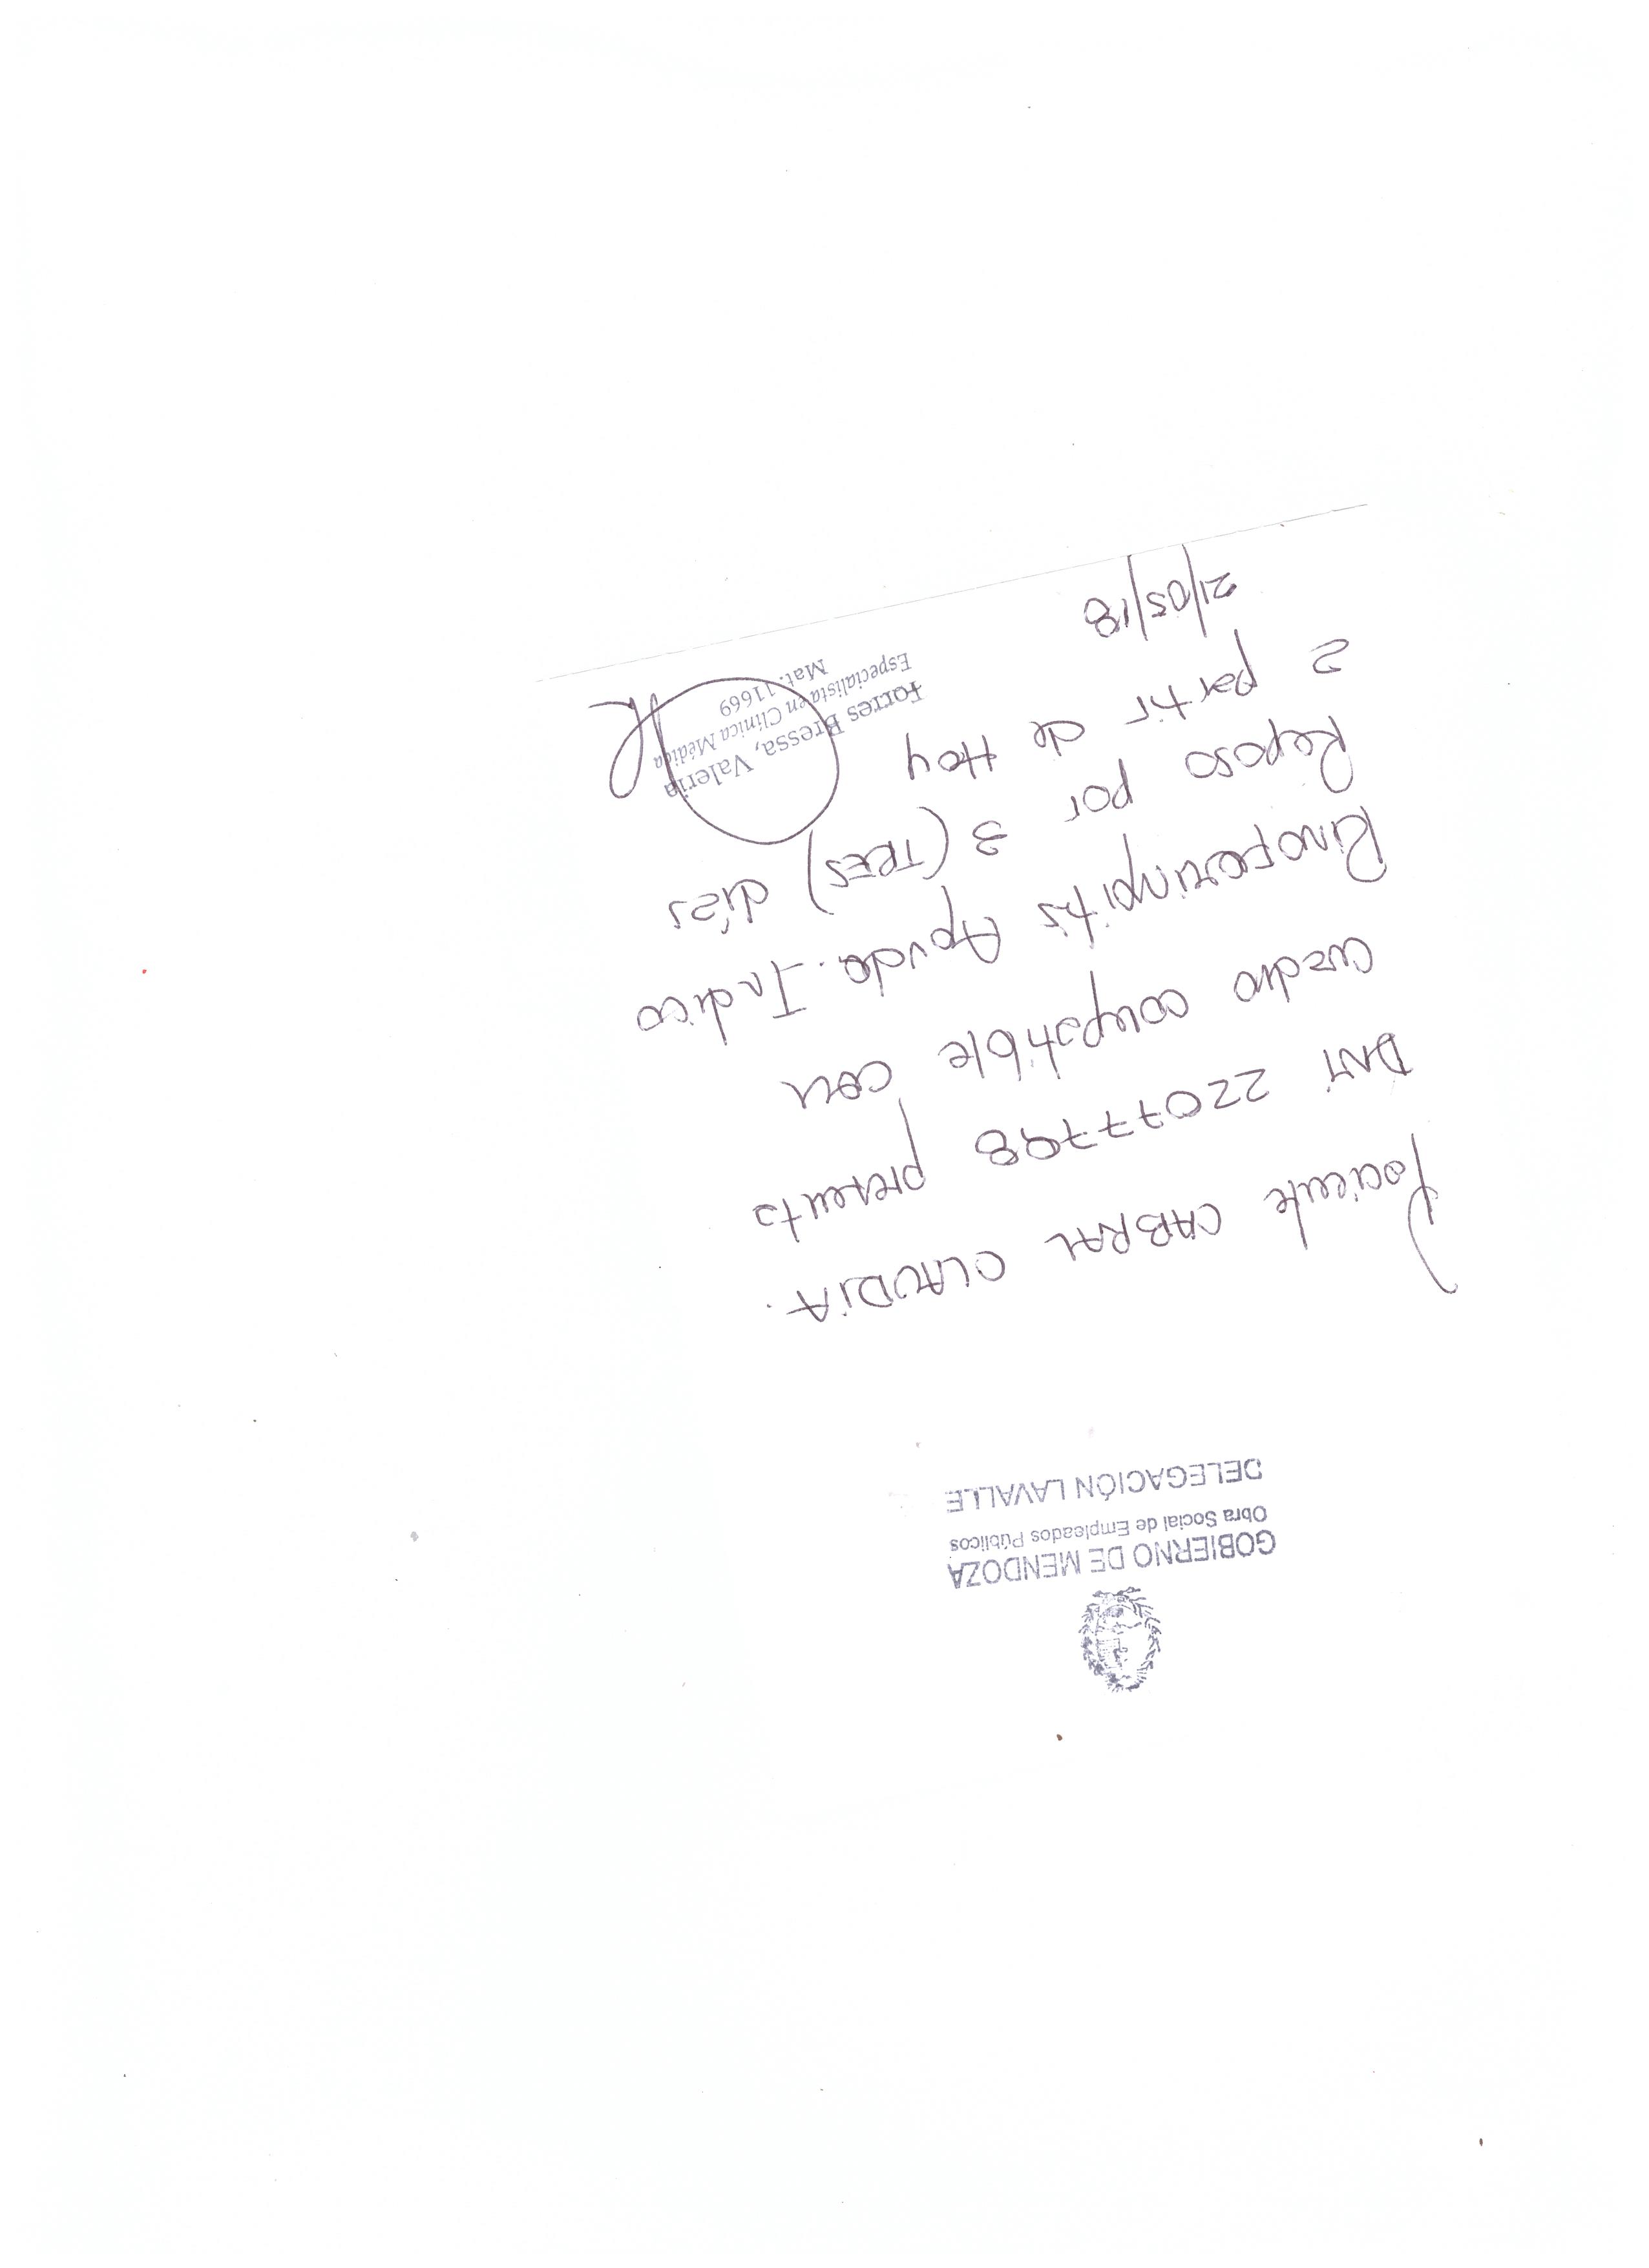 GOBIERNO DE MENDOZA
Obra Social de Empleados Públicos
DELEGACIÓN LAVALLE
Paciente CABRAL CLAUDIA.
DNI 22077798 presenta
cuadro compatible con
Rinofaringitis Aguda. Indico
Reposo por 3 (TRES) días
a partir de Hoy
21/05/18
Torres Bressa, Valeria
Especialista en Clínica Médica
Mat. 11669